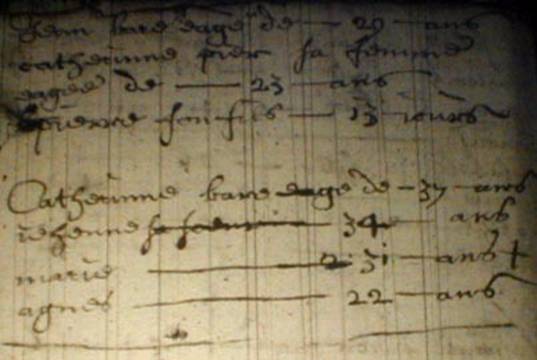 Jean bare eage de — 29 — ans
catherinne pier sa femme
eagee de — 23 — ans
pierre son fils — 15 jours
Catherinne bare eage de — 37 — ans
jehenne — 34 — ans
marie — 31 — ans +
agnes — 22 — ans